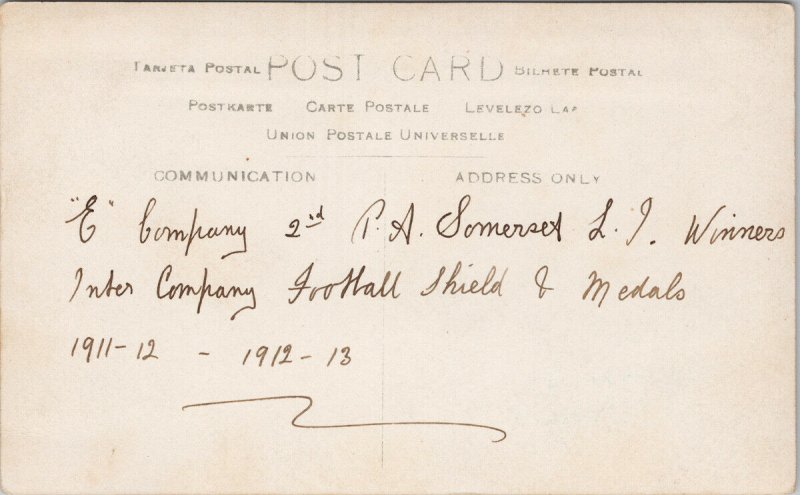 TARJETA POSTAL POST CARD BILHETE POSTAL
POSTKARTE CARTE POSTALE LEVELEZO LAP
UNION POSTALE UNIVERSELLE
COMMUNICATION ADDRESS ONLY
"E" Company 2nd P. A. Somerset L. I. Winners
Inter Company Football Shield & Medals
1911-12 - 1912-13